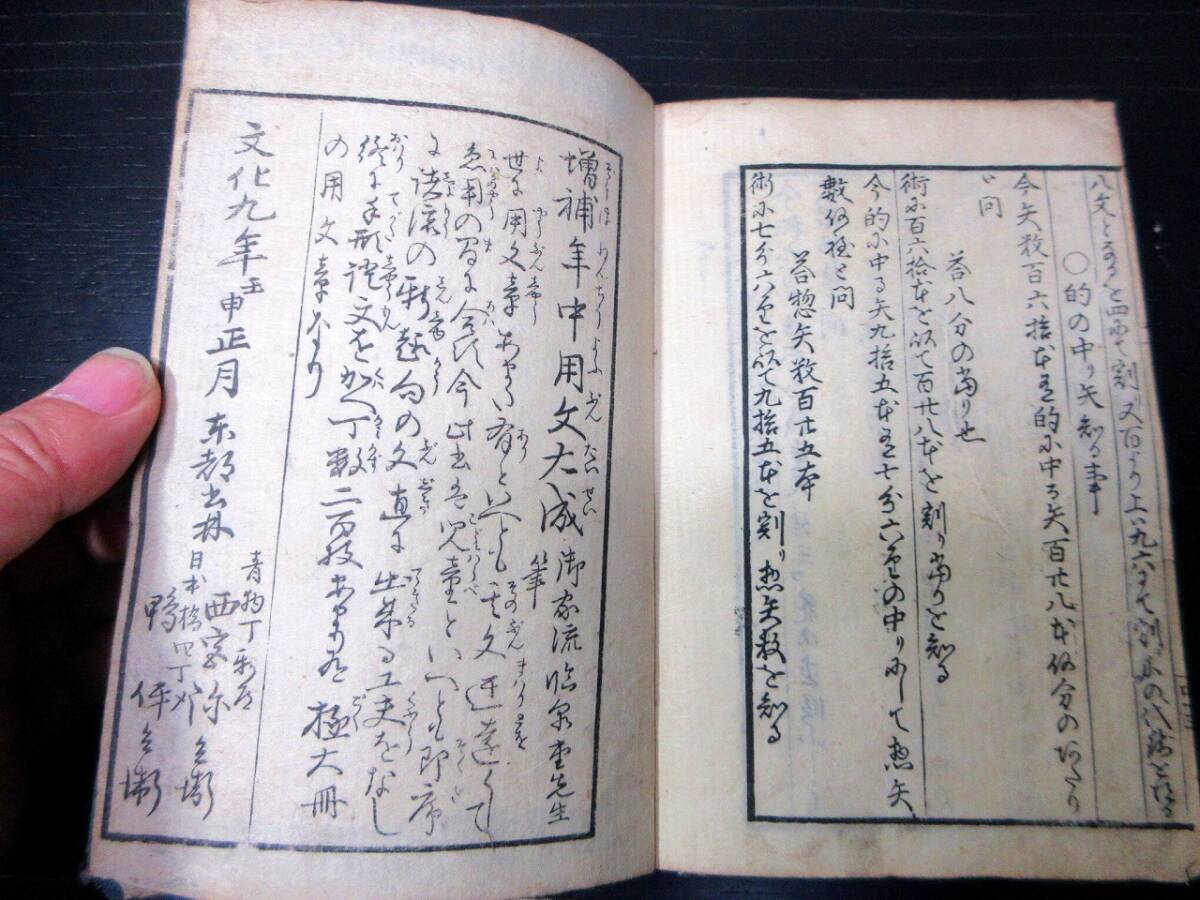 八文となるを四にて割
○的の中り矢知る事
今矢数百六拾本を的に中る矢百廿八本何分のあたり
と問
答八分の当り也
術に百六拾本を以て百廿八本を割り当りを知る
今的に中る矢九拾五本を七分六リの中りにして惣矢
数何程と問
答惣矢数百廿五本
術に七分六リを以て九拾五本を割り惣矢数を知る
増補年中用文大成 御家流臨泉堂先生筆
世に用文章あまた有といへとも其文迂遠くして
急用の間に合はず今此書は児童といへとも即席
に諸流の新題向の文直に出来る工夫をなし
終に手形証文をかく丁数二百枚あまりの極大冊
の用文章なり
文化九年壬申正月 東都書林
青物丁 西宮弥兵衛
日本橋四丁メ 鴨伊兵衛